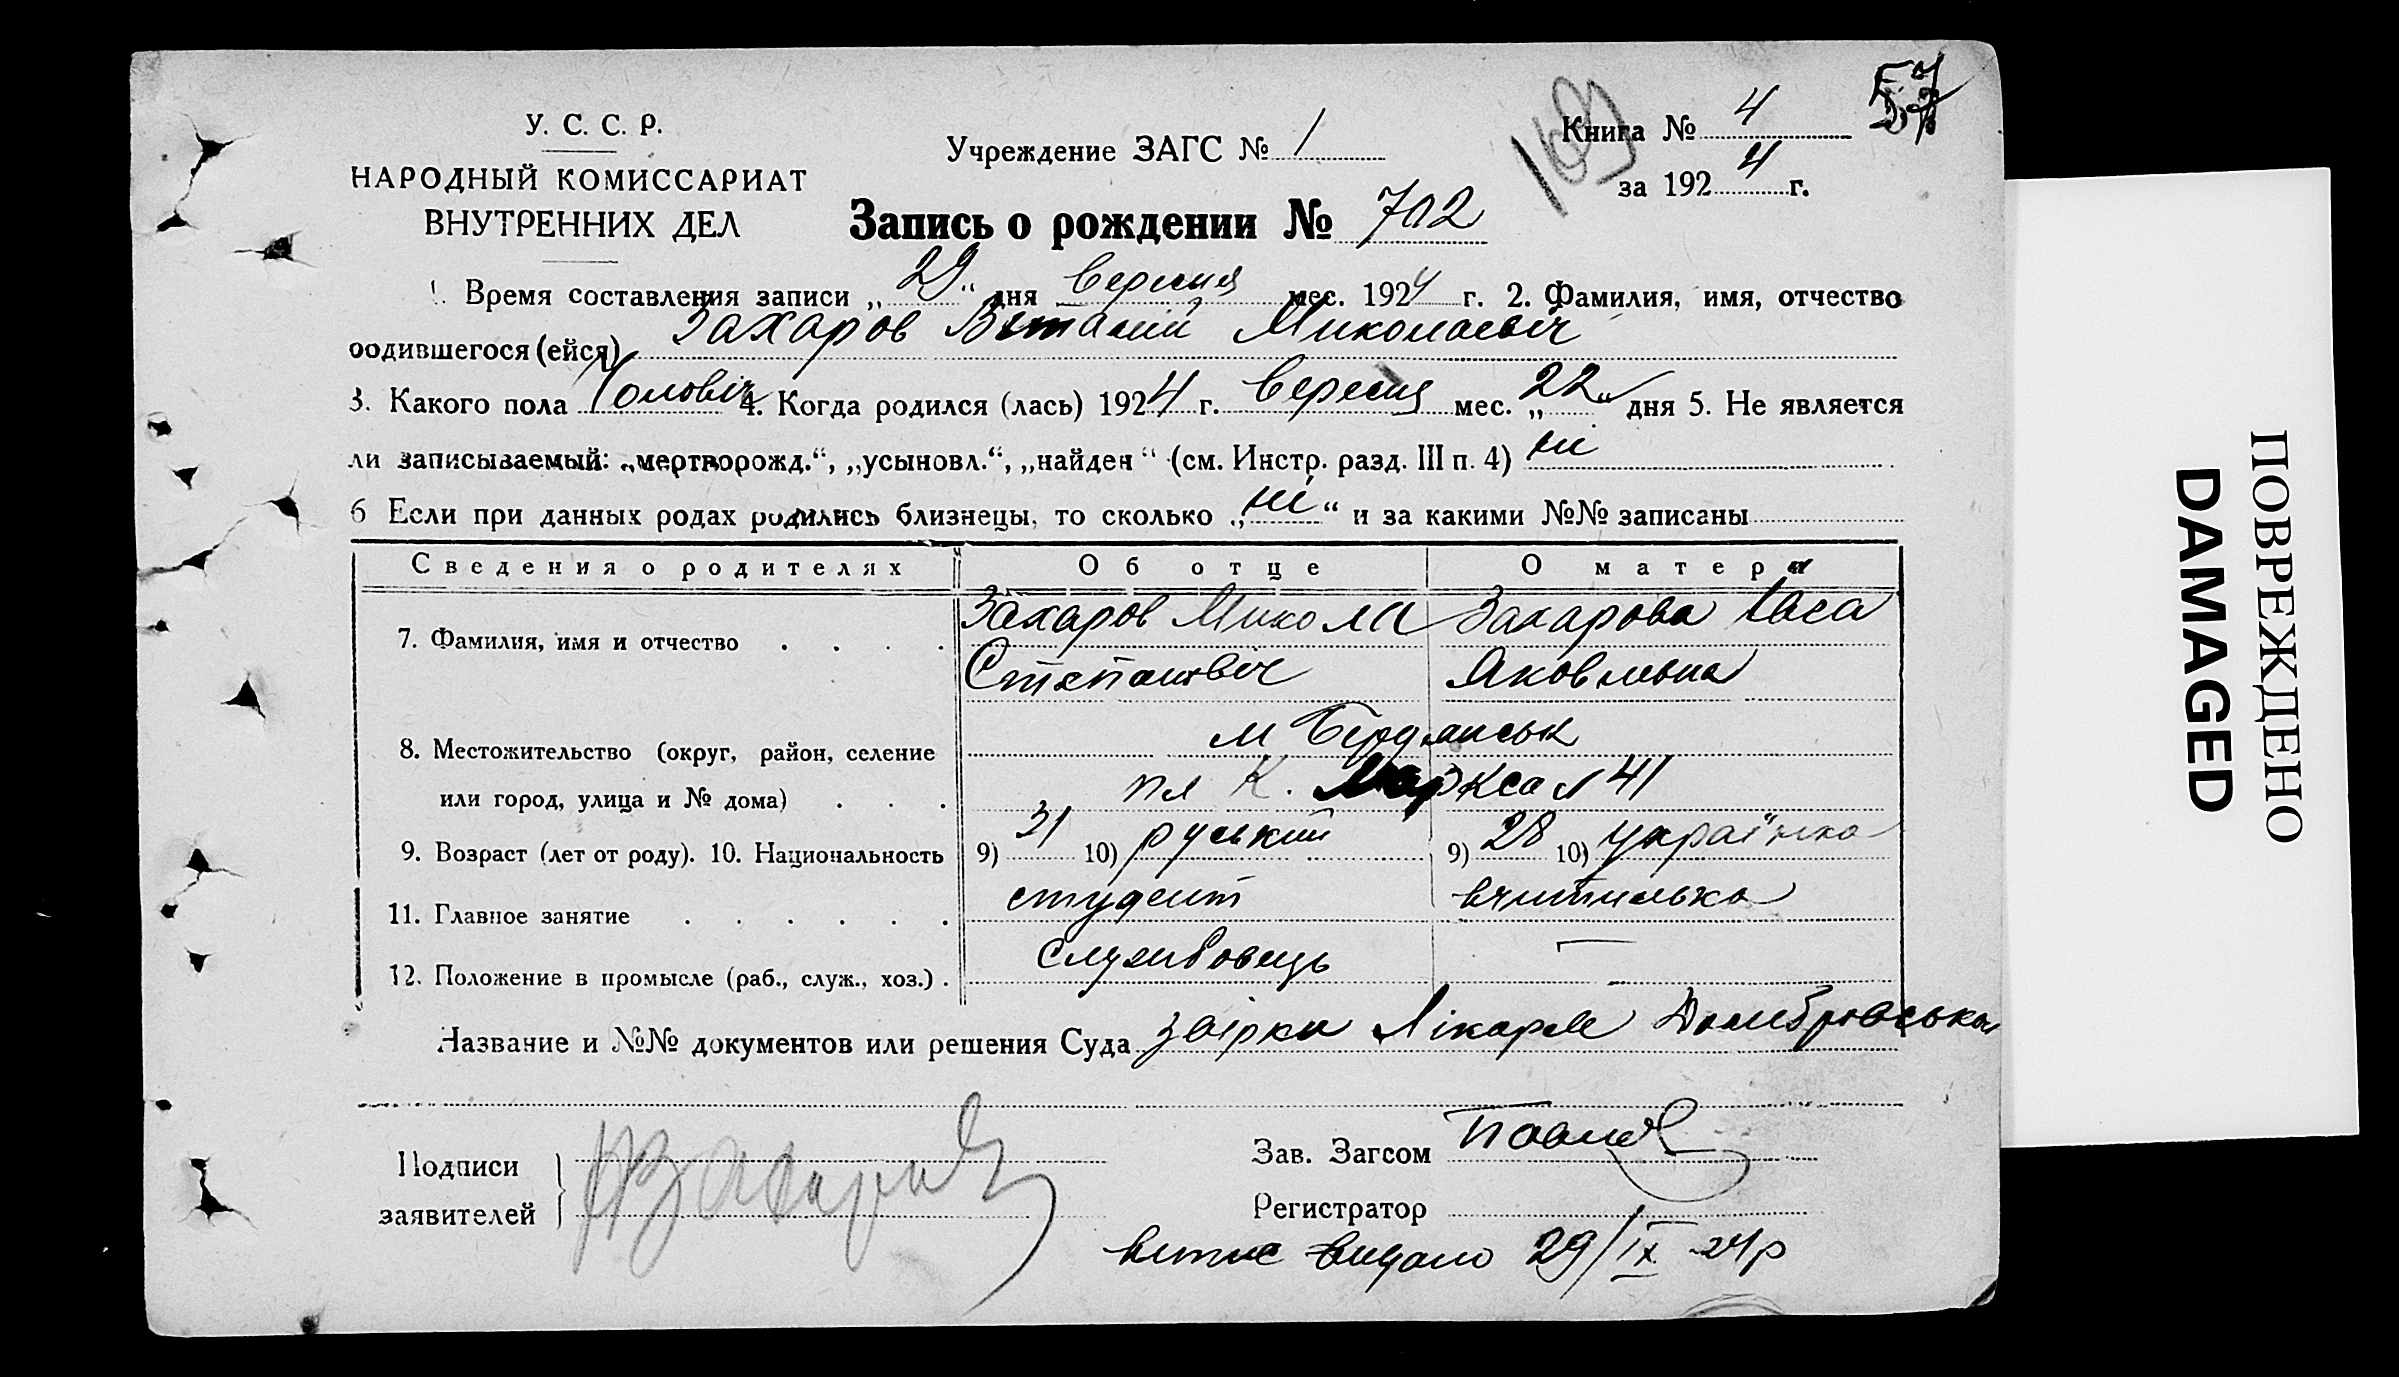 У. С. С. Р.
НАРОДНЫЙ КОМИССАРИАТ
ВНУТРЕННИХ ДЕЛ
Учреждение ЗАГС № 1
Запись о рождении № 702
169
Книга № 4
за 1924 г.
57
1. Время составления записи „29“ дня Вересня мес. 1924 г. 2. Фамилия, имя, отчество
родившегося (ейся) Захаров Віталій Миколаевіч
3. Какого пола Чоловіч 4. Когда родился (лась) 1924 г. Вересня мес. „22“ дня 5. Не является
ли записываемый: „мертворожд.“, „усыновл.“, „найден“ (см. Инстр. разд. III п. 4) ні
6 Если при данных родах родились близнецы, то сколько „ні“ и за какими №№ записаны
Сведения о родителях Об отце О матери
7. Фамилия, имя и отчество . . . . Захаров Микола Захарова
Степановіч Яковлевна
8. Местожительство (округ, район, селение м Бердянськ
или город, улица и № дома) . . . пл К. Маркса 41
9. Возраст (лет от роду). 10. Национальность 9) 31 10) руський 9) 28 10) українка
11. Главное занятие . . . . . . студент вчителька
12. Положение в промысле (раб., служ., хоз.) . службовець —
Название и №№ документов или решения Суда довірки Лікарле Домбровської
Подписи
заявителей
Захаров
Зав. Загсом
Регистратор
витис видано 29/IX 24р
ПОВРЕЖДЕНО
DAMAGED